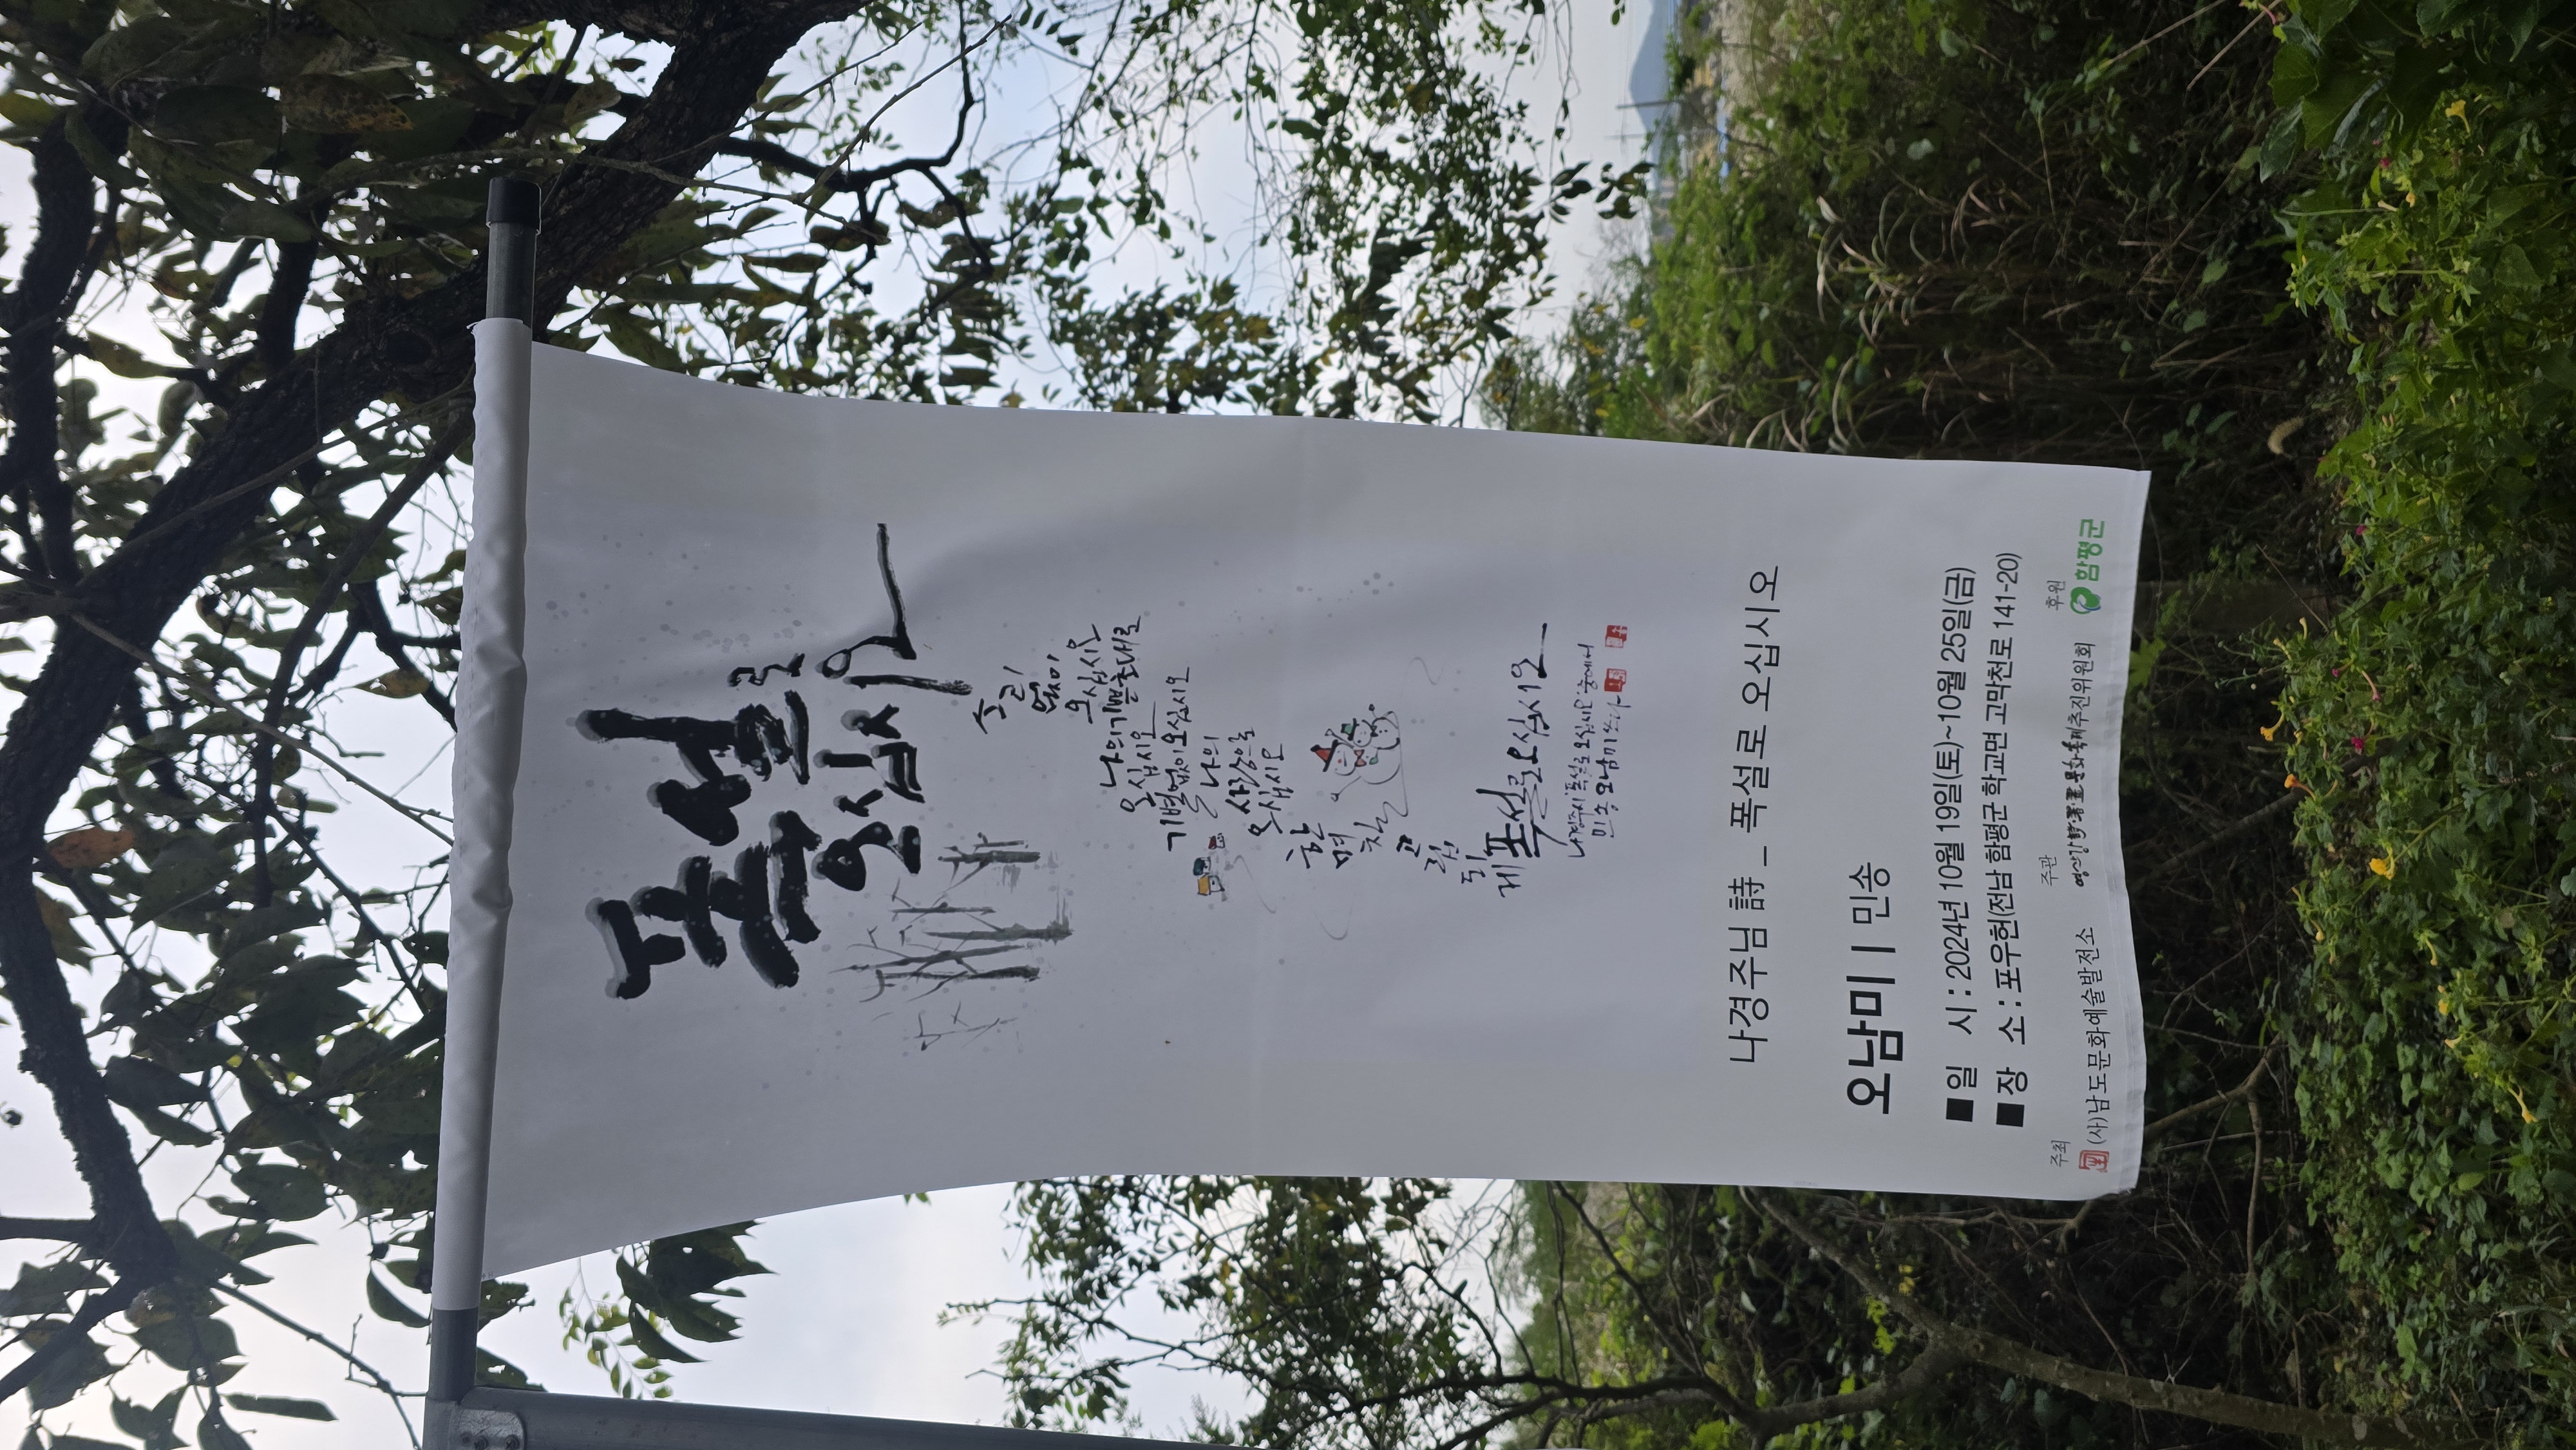 폭설로
오십시오
소리
없이
오십시오
나의 기쁨 그대로
오십시오
기별 없이 오십시오
나의
사랑으로
오십시오
한
며칠
고립
되게
폭설로 오십시오
나경주 시 폭설로 오십시오 중에서
민송 오남미 쓰다
나경주님 詩 _ 폭설로 오십시오
오남미 | 민송
■ 일 시 : 2024년 10월 19일(토)~10월 25일(금)
■ 장 소 : 포우헌(전남 함평군 학교면 고막천로 141-20)
주최 주관 후원
(사)남도문화예술발전소 추진위원회 함평군